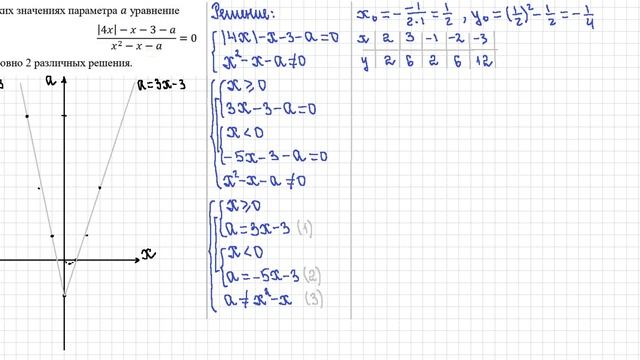 ких значениях параметра a уравнение
|4x| − x − 3 − a / x² − x − a = 0
овно 2 различных решения.
a
a=3x-3
x
Решение:
|4x|-x-3-a=0
x²-x-a≠0
x≥0
3x-3-a=0
x<0
-5x-3-a=0
x²-x-a≠0
x≥0
a=3x-3 (1)
x<0
a=-5x-3 (2)
a≠x²-x (3)
x₀=-\frac{-1}{2·1}=\frac{1}{2}, y₀=(\frac{1}{2})²-\frac{1}{2}=-\frac{1}{4}
x 2 3 -1 -2 -3
y 2 6 2 6 12